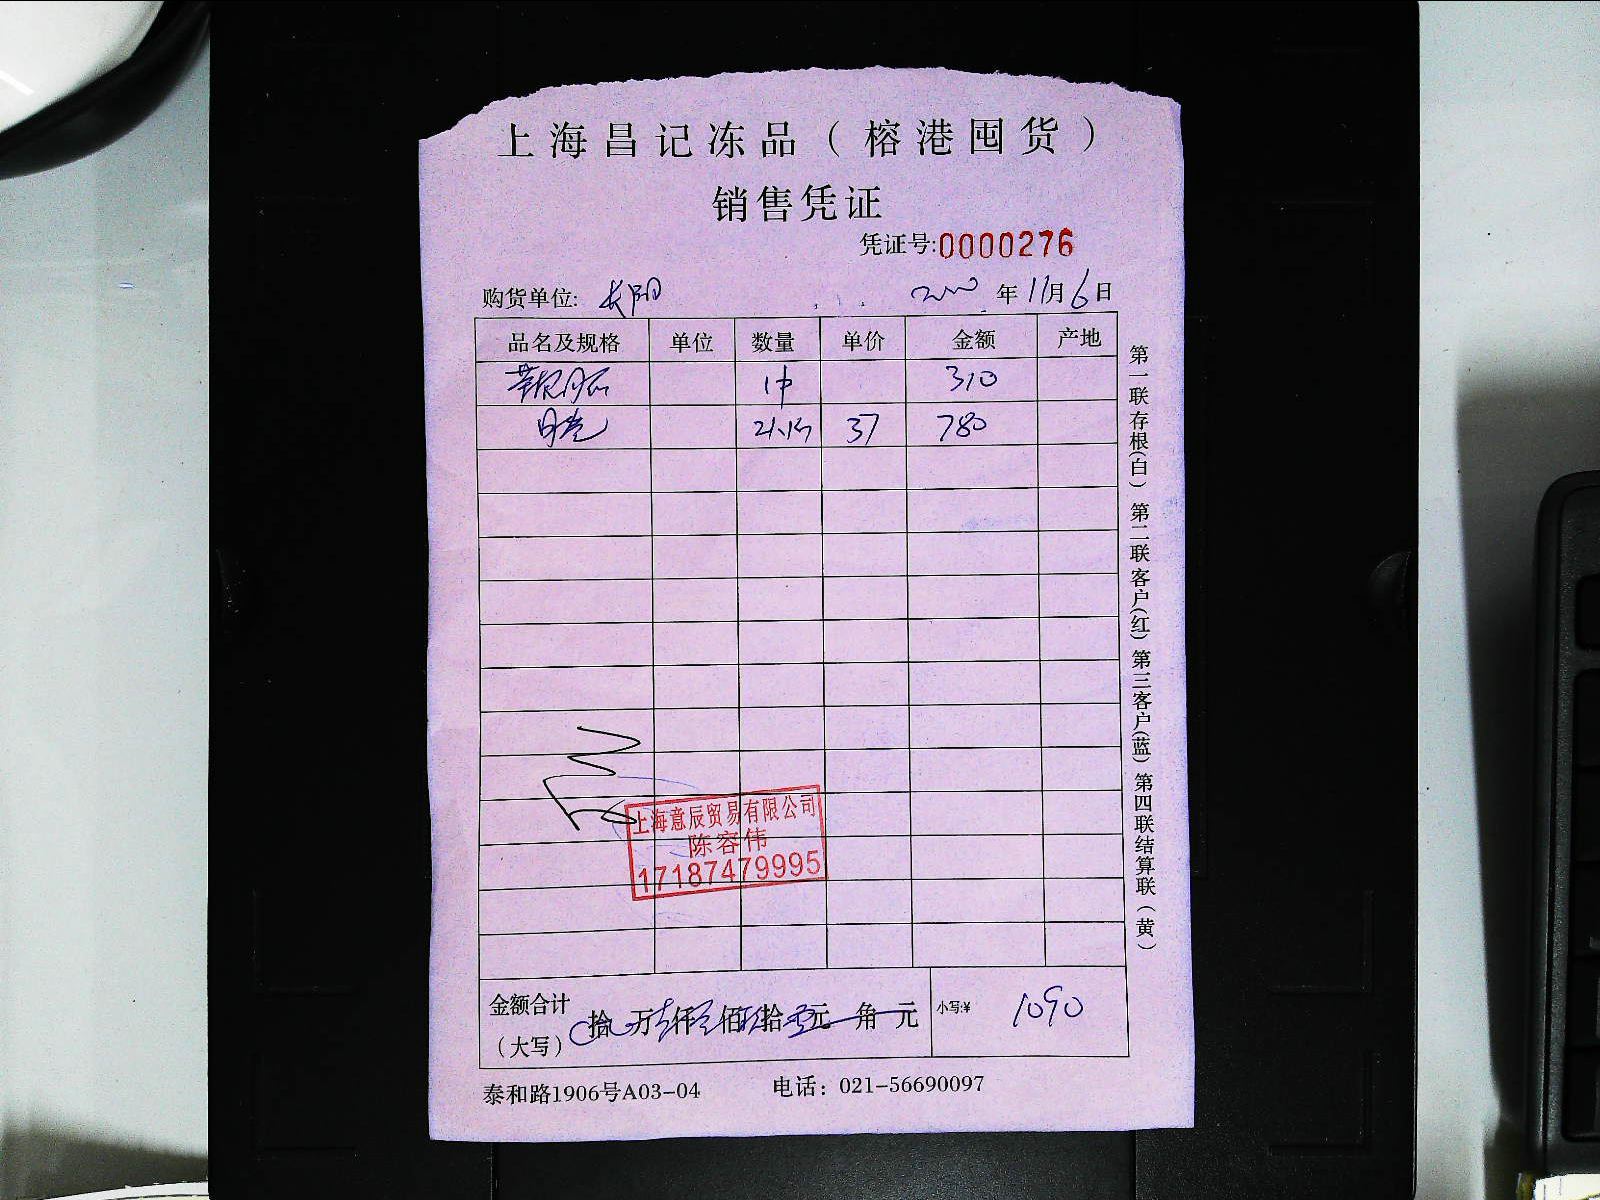 上海昌记冻品（榕港囤货）
销售凭证
凭证号:0000276
购货单位: 长阳 年11月6日
品名及规格 单位 数量 单价 金额 产地
1件 310
37 780
上海意辰贸易有限公司
陈容伟
17187479995
金额合计（大写） 拾 万 仟 佰 拾 元 角 元 小写:¥ 1090
泰和路1906号A03-04 电话：021-56690097
第一联存根(白) 第二联客户(红) 第三客户(蓝) 第四联结算联(黄)